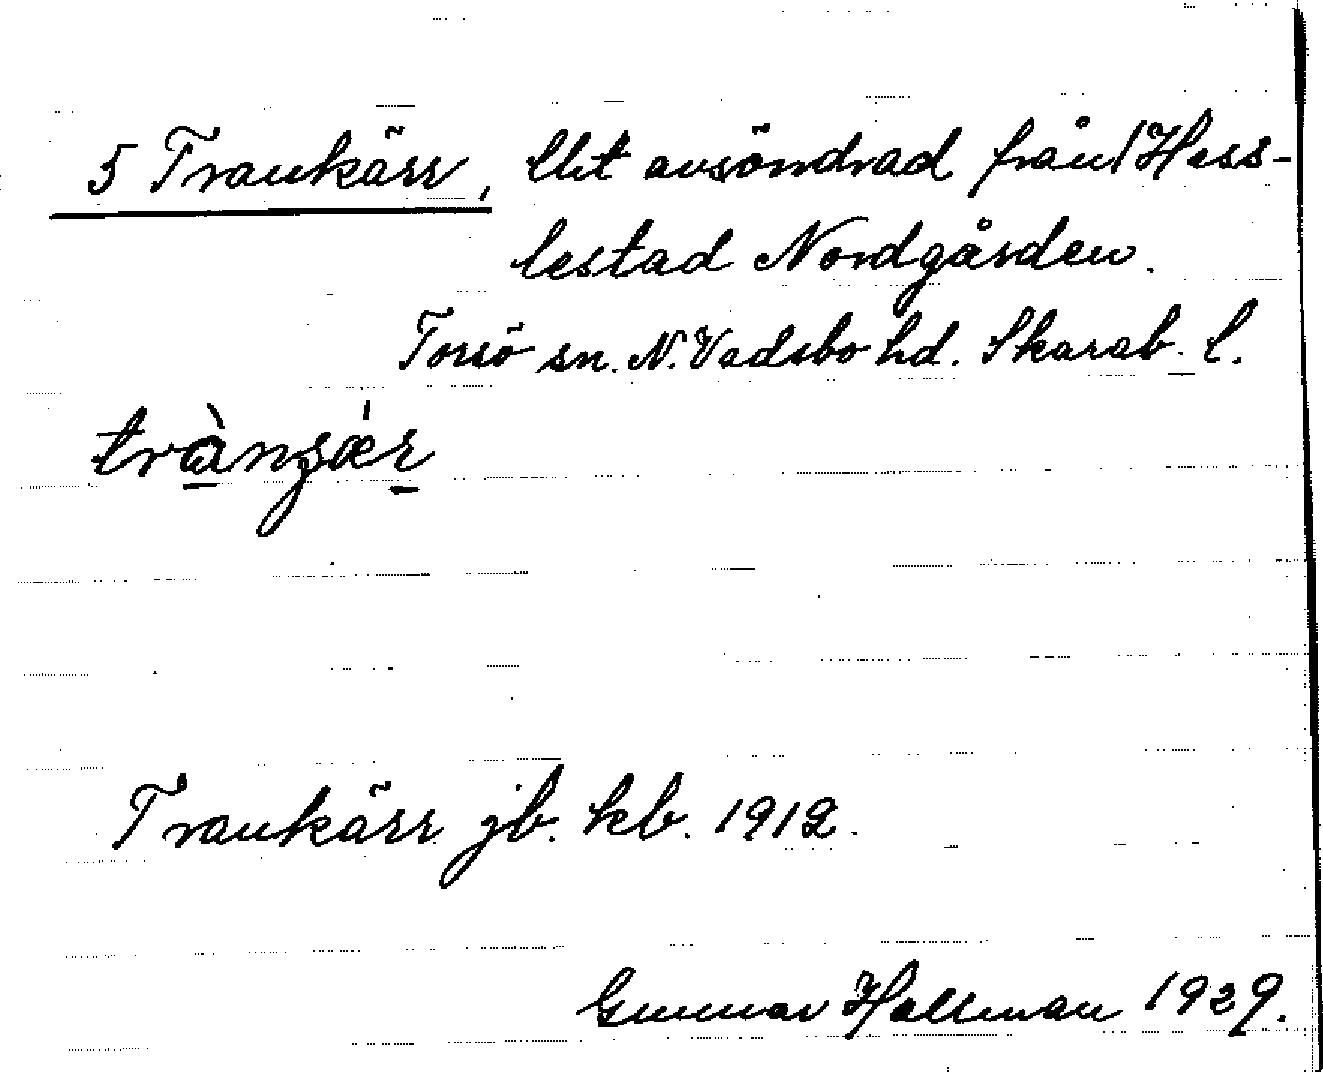 5 Trankärr, lht avsöndrad från 1 Hass-
lestad Nordgården.
Torsö sn. N. Vadsbo hd. Skarab. l.
trànʒǽr
Trankärr jb. kb. 1912.
Gunnar Hallman 1929.